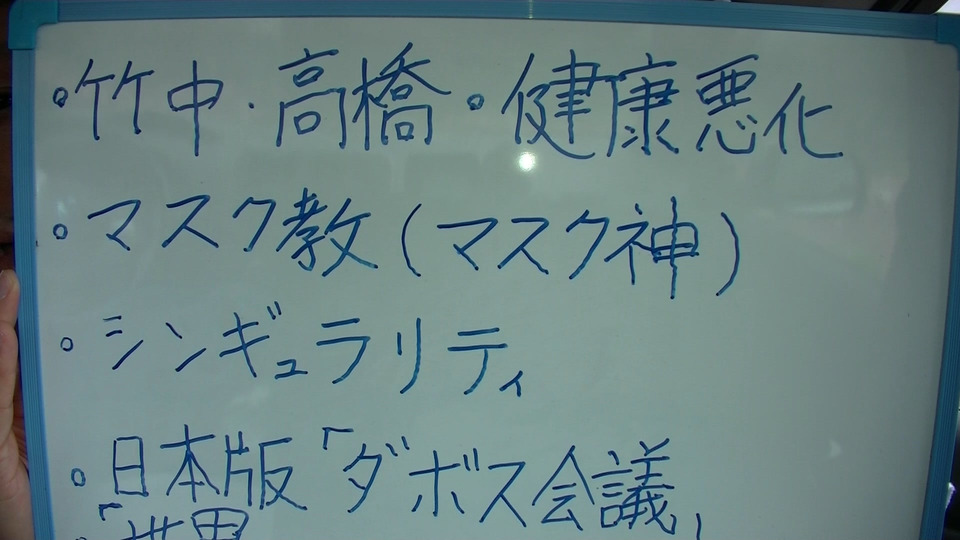 。竹中・高橋。健康悪化
。マスク教(マスク神)
。シンギュラリティ
。日本版「ダボス会議」
。「世界